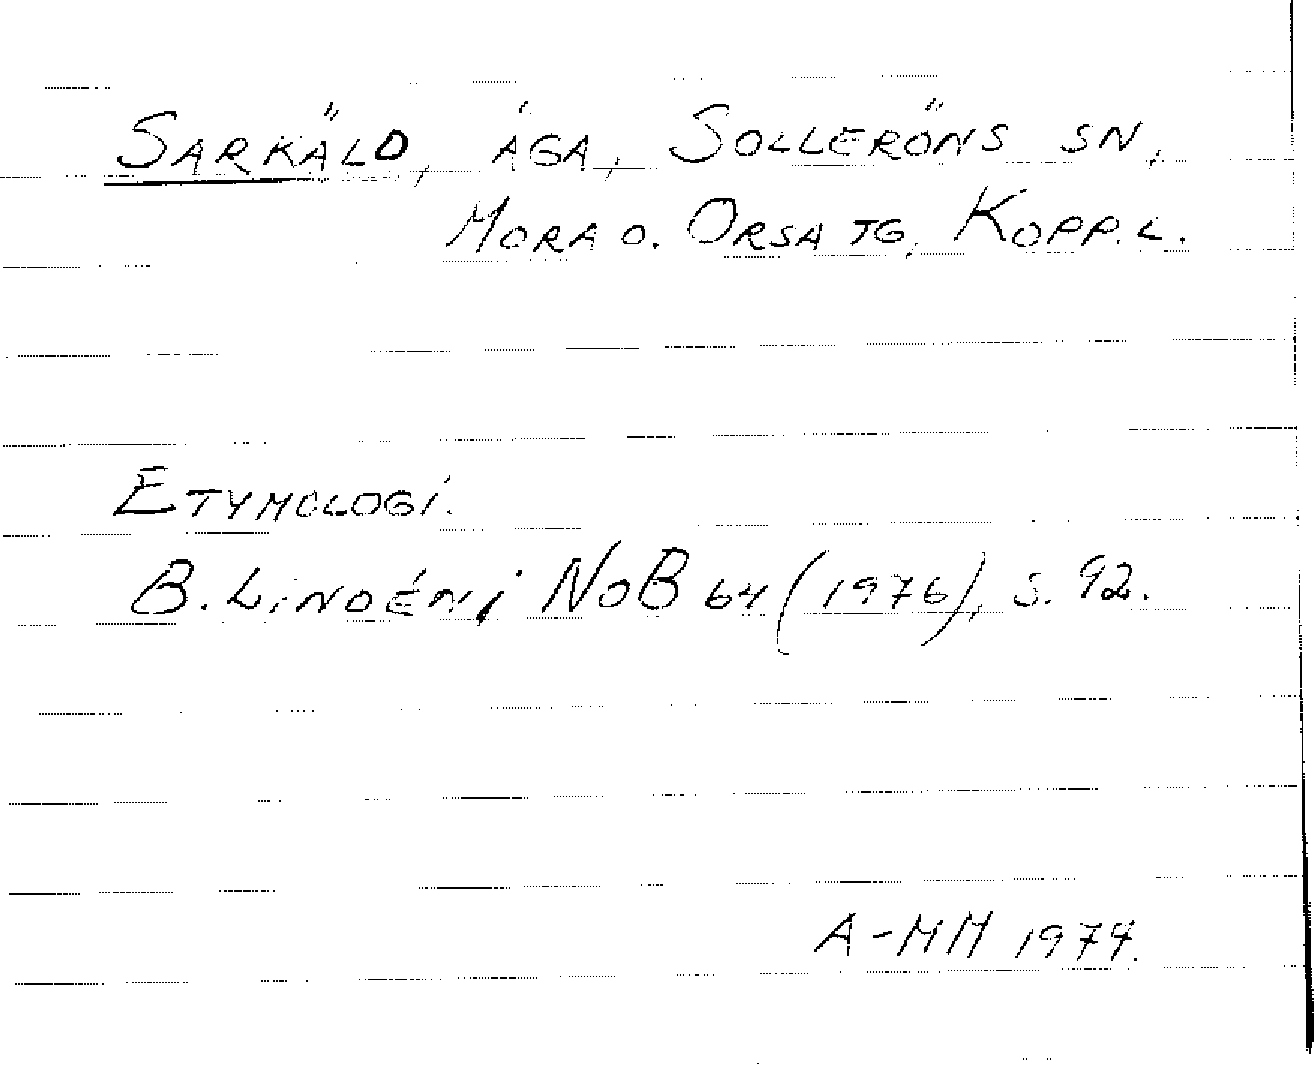 SARKÄLD, ÄGA, SOLLERÖNS SN,
MORA O. ORSA TG, KOPP. L.
ETYMOLOGI.
B. LINDÉN I NOB 64 (1976), S. 92.
A-MM 1977.